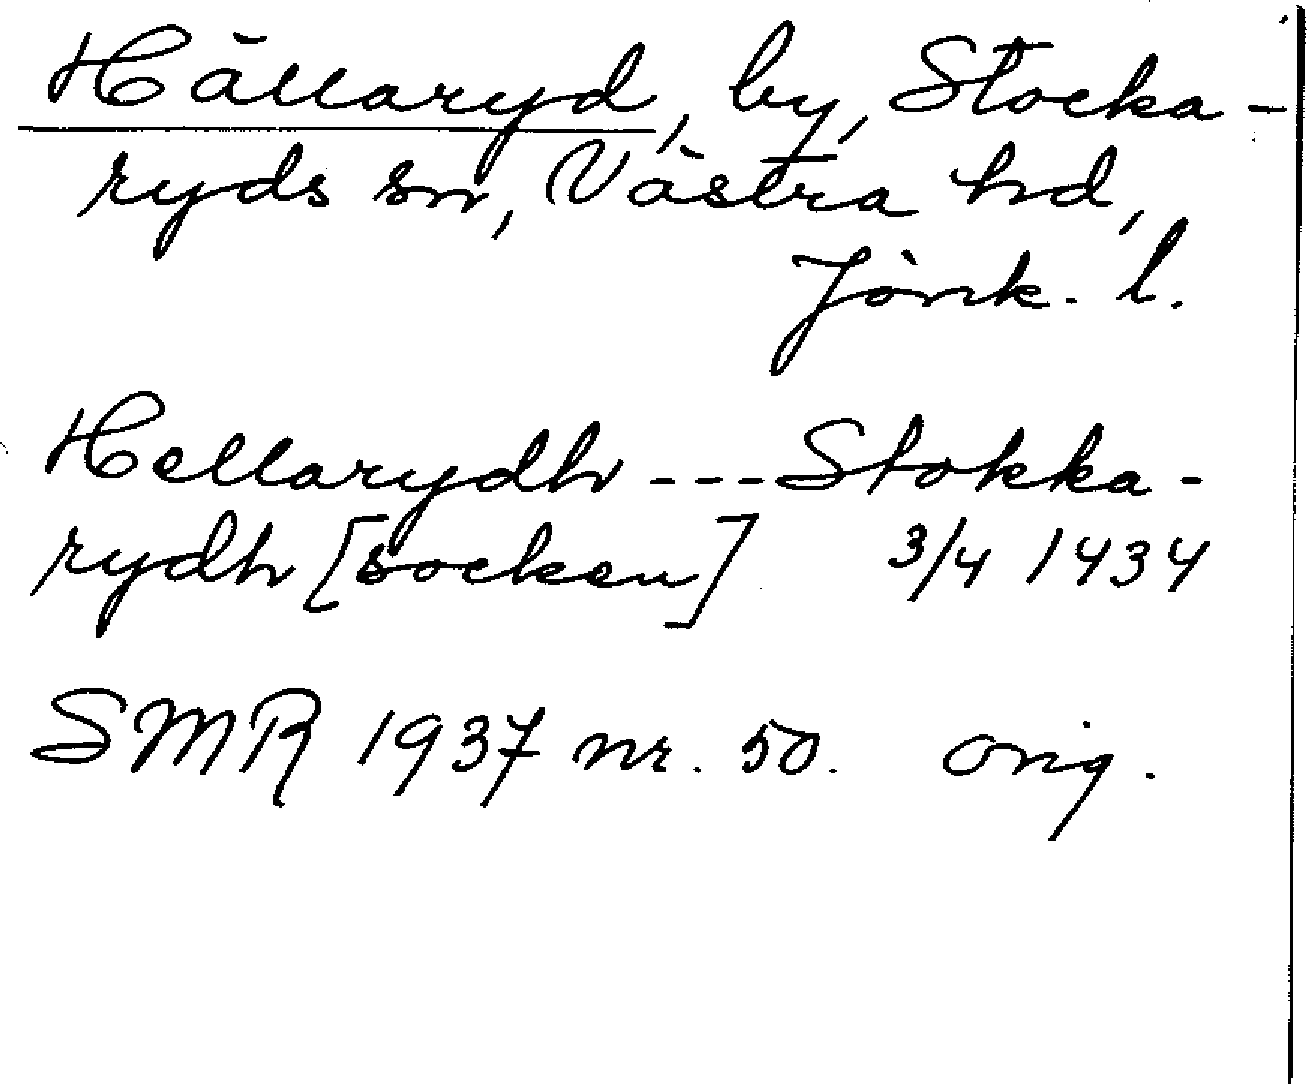 Hällaryd, by, Stocka-
ryds sn, Västra hd,
Jönk. l.
Hellarydh --- Stokka-
rydh [socken] 3/4 1434
SMR 1937 nr. 50. orig.